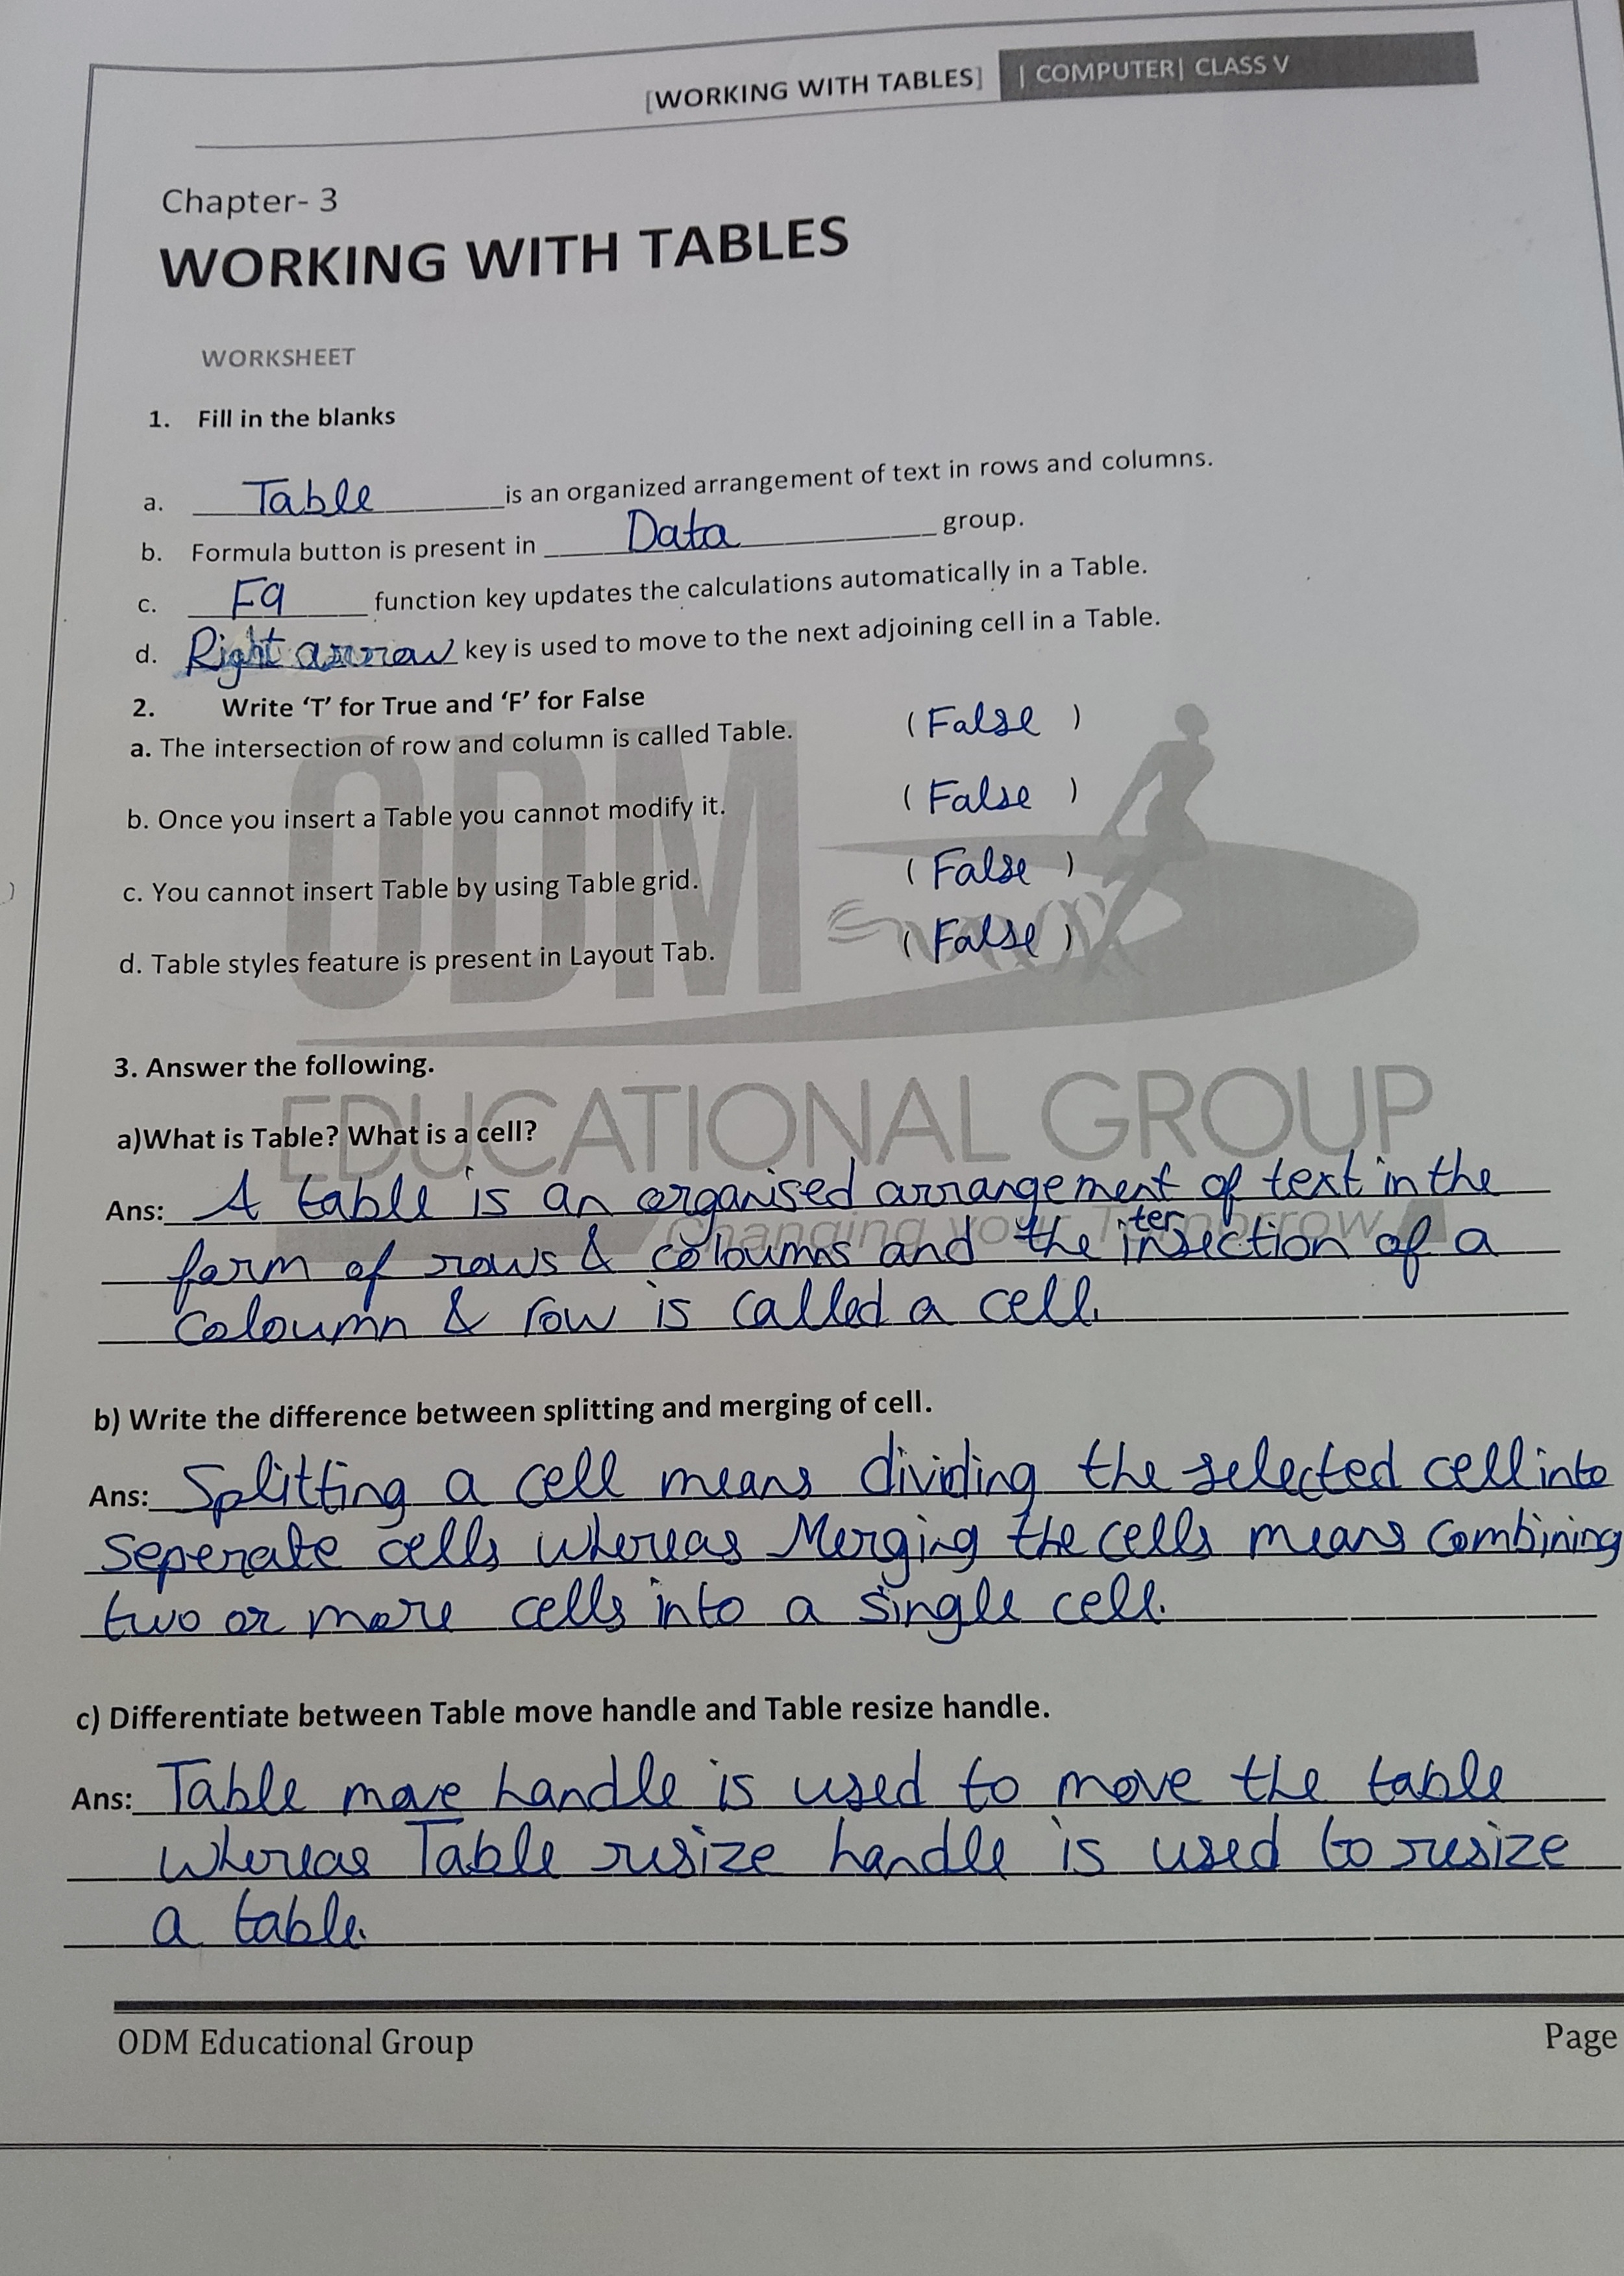 [WORKING WITH TABLES] | COMPUTER| CLASS V
Chapter- 3
WORKING WITH TABLES
WORKSHEET
1. Fill in the blanks
a. Table is an organized arrangement of text in rows and columns.
b. Formula button is present in Data group.
c. F9 function key updates the calculations automatically in a Table.
d. Right arrow key is used to move to the next adjoining cell in a Table.
2. Write ‘T’ for True and ‘F’ for False
a. The intersection of row and column is called Table. (False)
b. Once you insert a Table you cannot modify it. (False)
c. You cannot insert Table by using Table grid. (False)
d. Table styles feature is present in Layout Tab. (False)
ODM
3. Answer the following.
EDUCATIONAL GROUP
a)What is Table? What is a cell?
Changing your Tomorrow
Ans: A table is an organised arrangement of text in the
form of rows & coloumns and the intersection of a
coloumn & row is called a cell.
b) Write the difference between splitting and merging of cell.
Ans: Splitting a cell means dividing the selected cell into
seperate cells whereas Merging the cells means combining
two or more cells into a single cell.
c) Differentiate between Table move handle and Table resize handle.
Ans: Table move handle is used to move the table
whereas Table resize handle is used to resize
a table.
ODM Educational Group Page